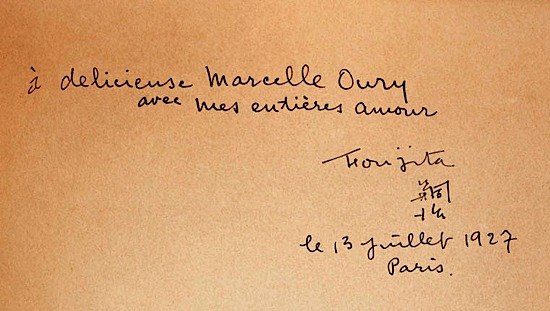 à delicieuse Marcelle Oury
avec mes entières amour
Foujita
嗣治
le 13 juillet 1927
Paris.